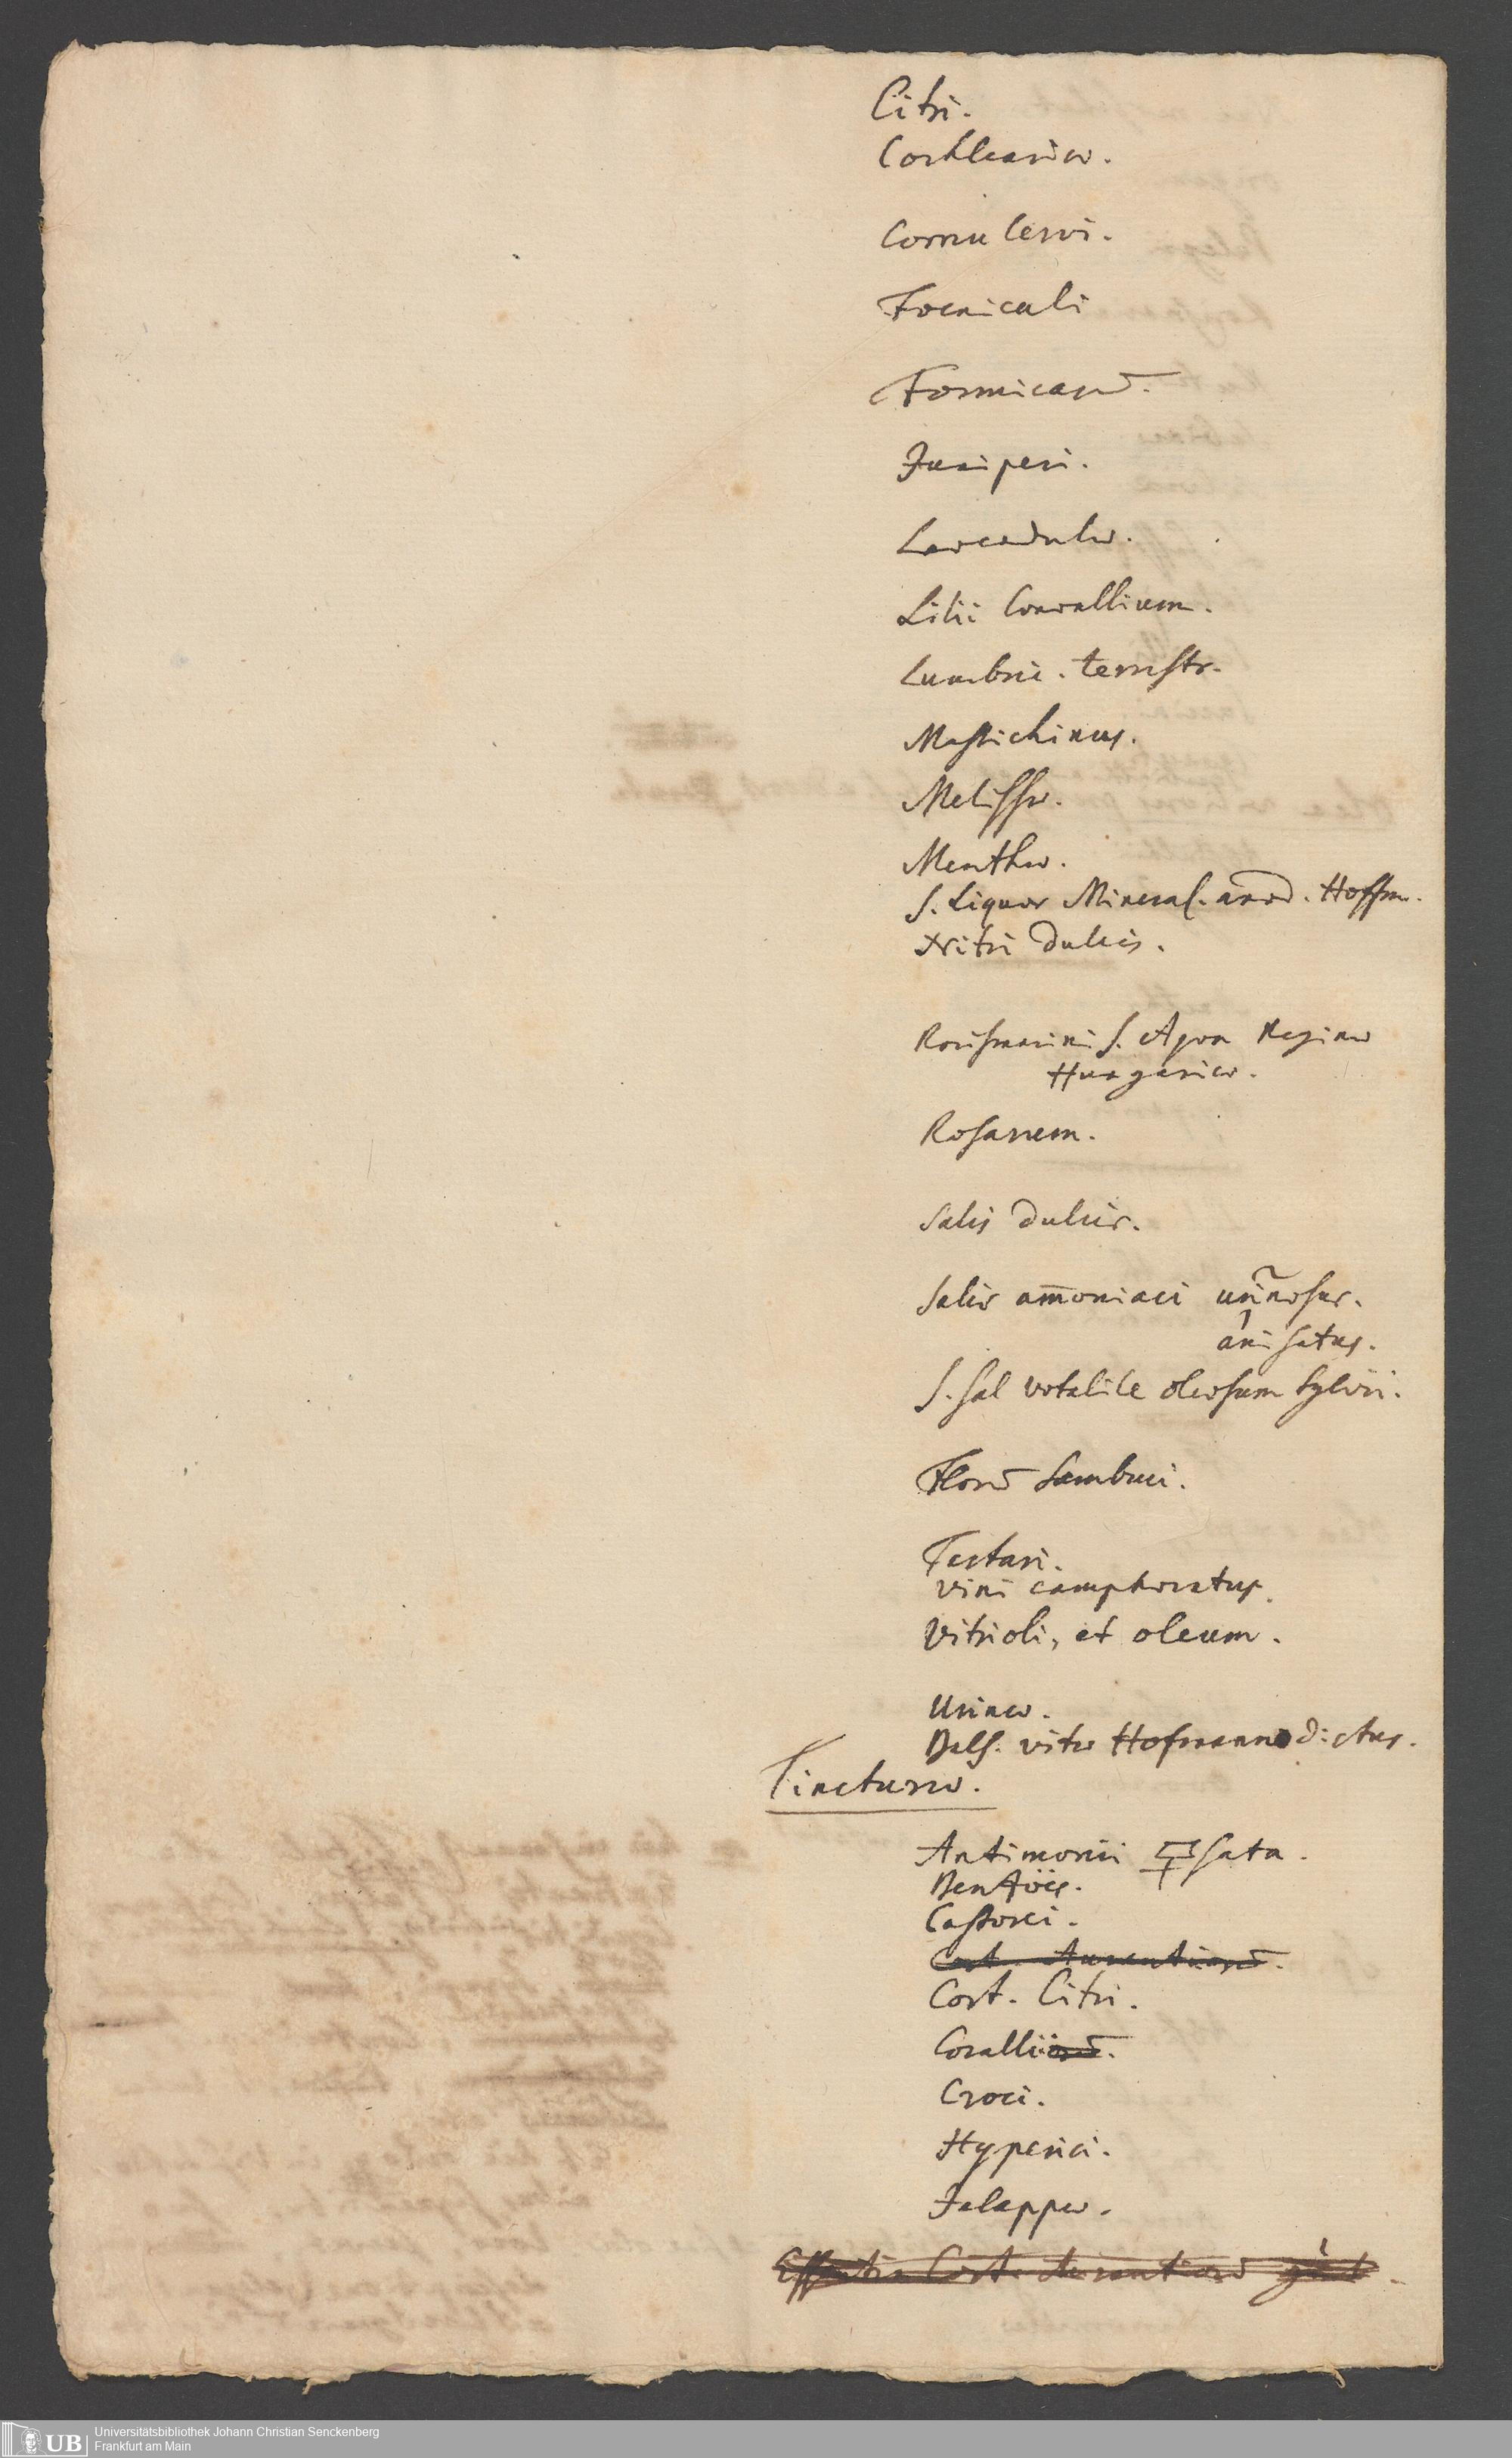 Citri.
Cochleariæ.
Cornu Cervi.
Foeniculi
Formicarū.
Juniperi.
Lavendulæ.
Lilii Convallium.
Lumbric. terrestr.
Mastichinus.
Melissæ.
Menthæ.
S. Liquor Mineral. anod. Hoffm.
Nitri dulcis.
Rorismarini S. Aqva Reginæ
Hungaricæ.
Rosarum.
Salis dulcis.
Salis am̄oniaci urinosus.
anisatus.
S. Sal volatile oleosum Sylvii.
Florū Sambuci.
Tartari.
Vini camphoratus.
Vitrioli, et oleum.
Urinæ.
Bals. vitæ Hofmanno dictus.
Tincturæ.
Antimonii 🜿sata.
Benzöes.
Castorei.
Cort. Aurantiorū.
Cort. Citri.
Coralliorū.
Croci.
Hyperici.
Jalappæ.
Essentia Cort. Aurantiorū
Universitätsbibliothek Johann Christian Senckenberg
Frankfurt am Main
UB